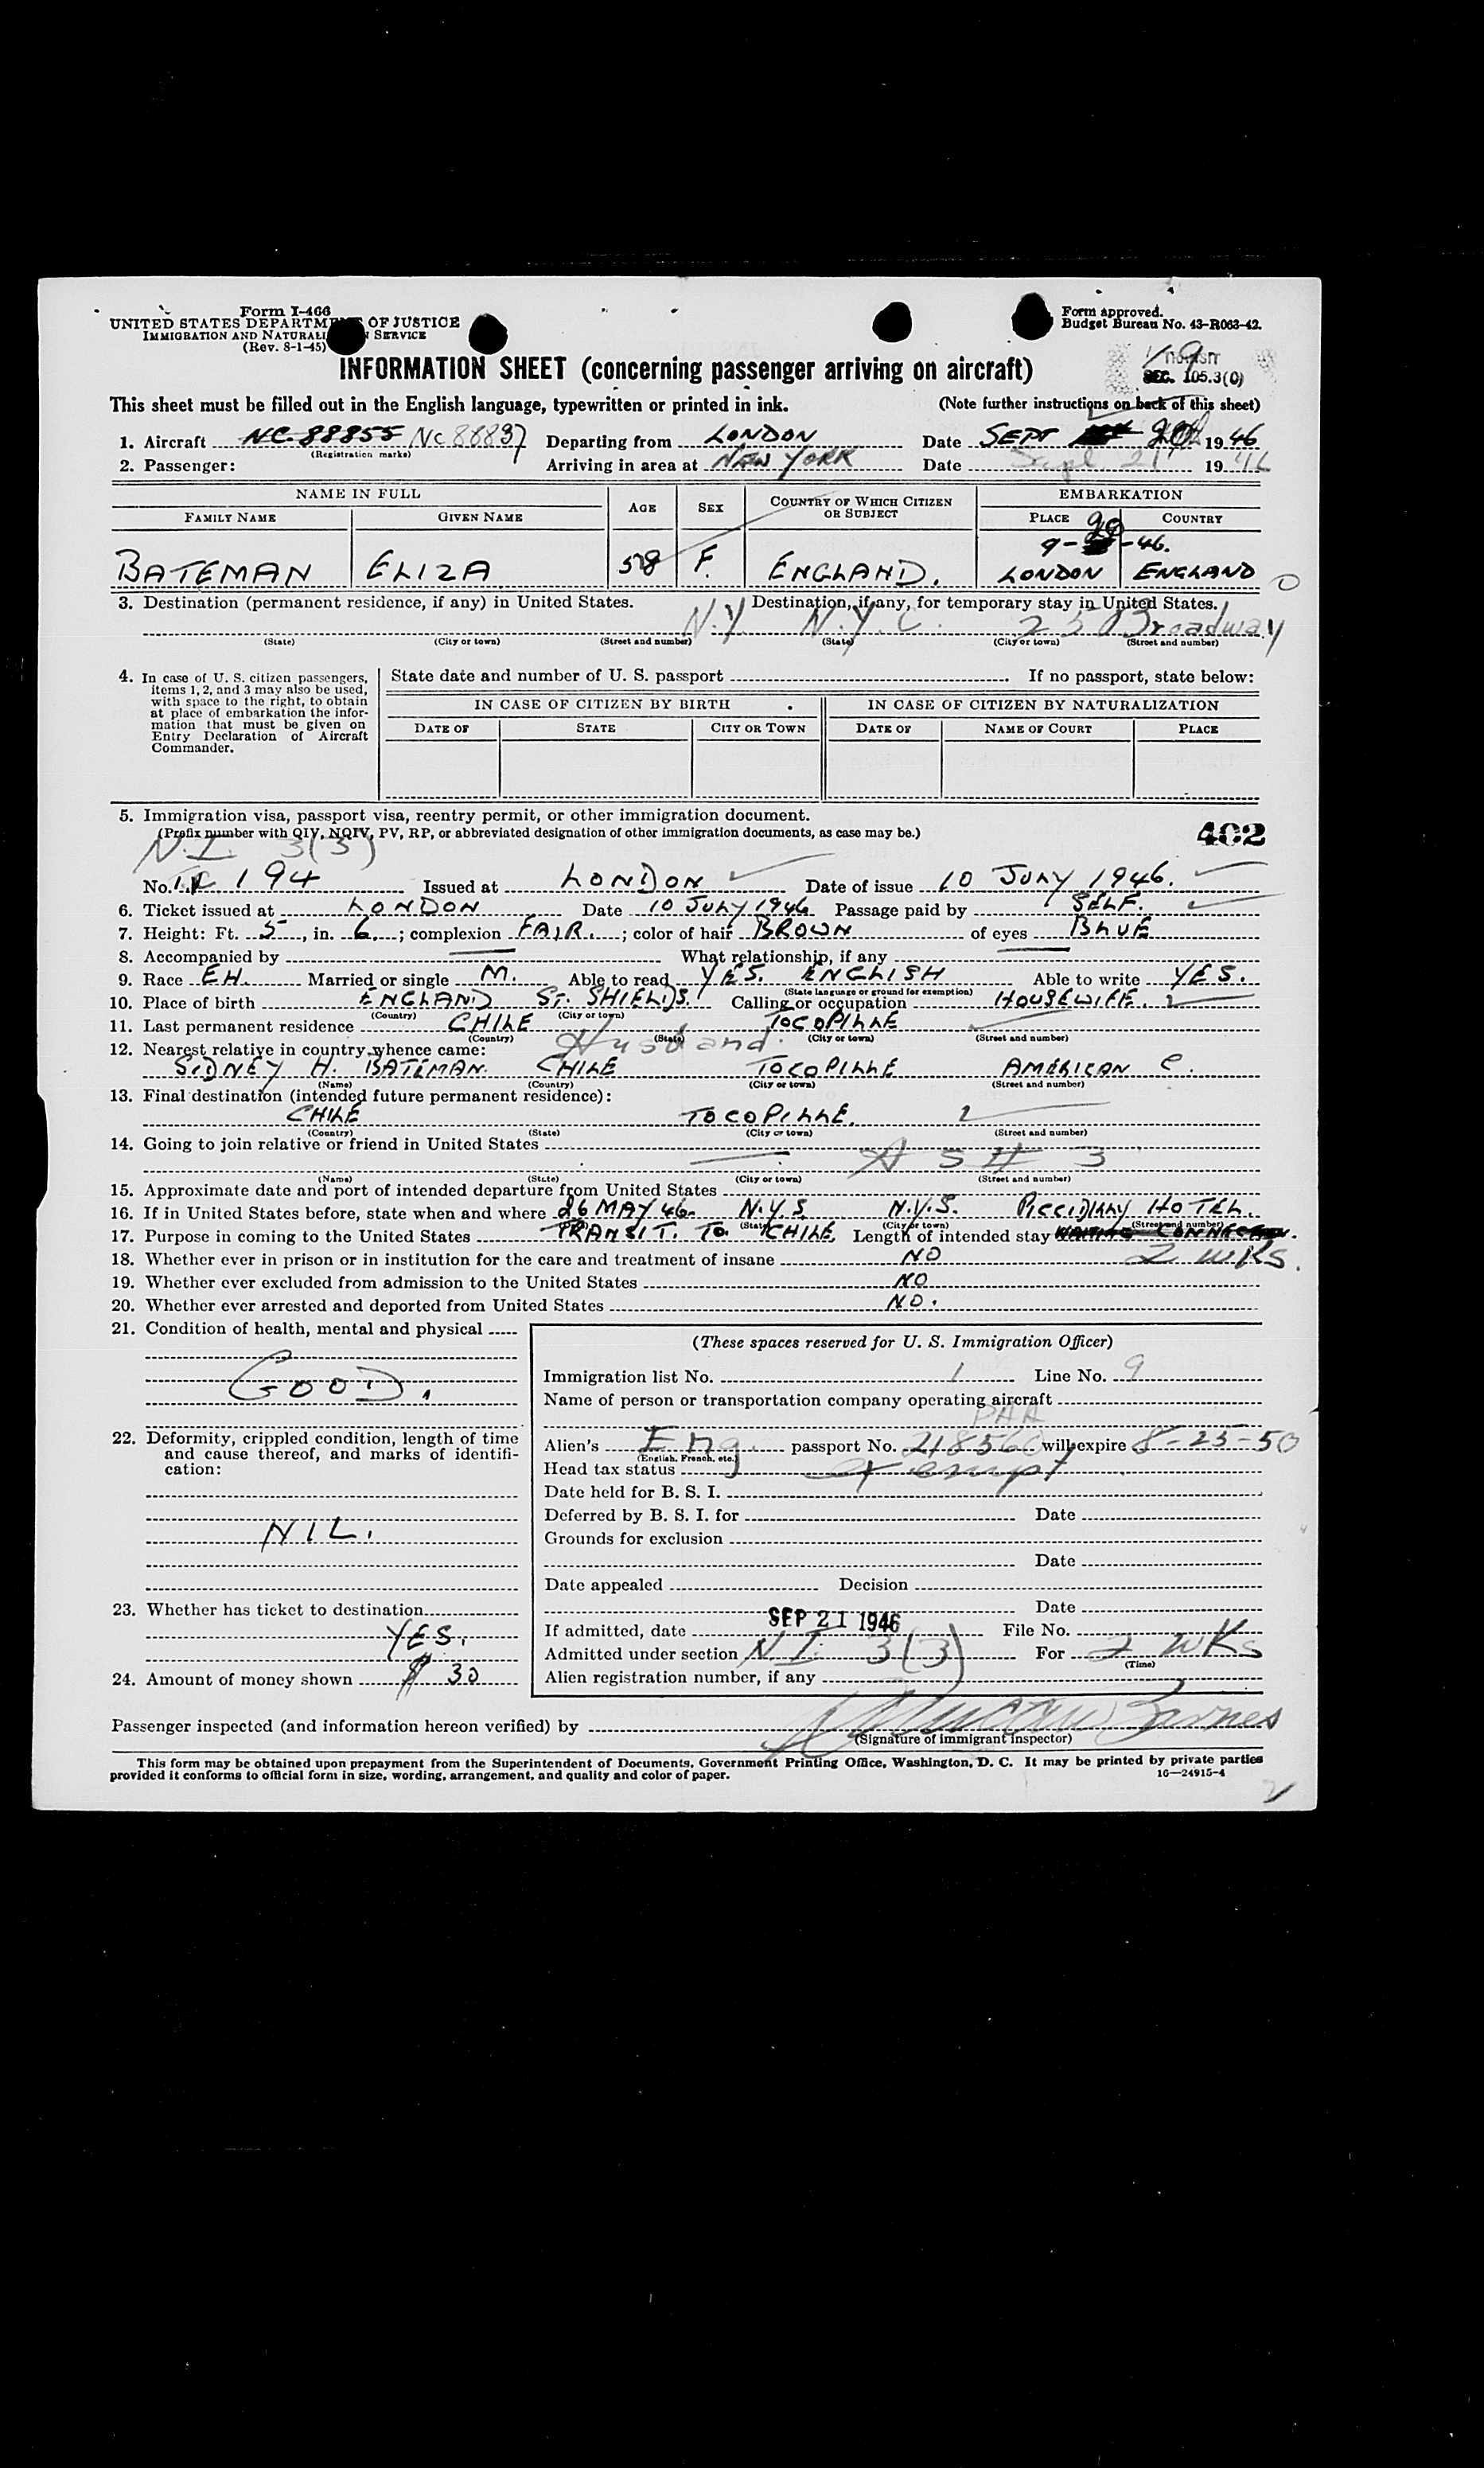 Form I-466
UNITED STATES DEPARTMENT OF JUSTICE
IMMIGRATION AND NATURALIZATION SERVICE
(Rev. 8-1-45)
Form approved.
Budget Bureau No. 43-R063-42.
INFORMATION SHEET (concerning passenger arriving on aircraft)
SEC. 105.3(0)
This sheet must be filled out in the English language, typewritten or printed in ink. (Note further instructions on back of this sheet)
1. Aircraft NC 88855 NC 88837 Departing from LONDON Date SEPT 20 1946
(Registration marks)
2. Passenger: Arriving in area at NEW YORK Date Sept 21 1946
NAME IN FULL AGE SEX COUNTRY OF WHICH CITIZEN OR SUBJECT EMBARKATION
FAMILY NAME GIVEN NAME PLACE COUNTRY
9-20-46.
BATEMAN ELIZA 58 F. ENGLAND. LONDON ENGLAND
3. Destination (permanent residence, if any) in United States. Destination, if any, for temporary stay in United States.
N.Y. N.Y.C. 250 Broadway
(State) (City or town) (Street and number) (State) (City or town) (Street and number)
4. In case of U. S. citizen passengers, items 1, 2, and 3 may also be used, with space to the right, to obtain at place of embarkation the information that must be given on Entry Declaration of Aircraft Commander.
State date and number of U. S. passport If no passport, state below:
IN CASE OF CITIZEN BY BIRTH IN CASE OF CITIZEN BY NATURALIZATION
DATE OF STATE CITY OR TOWN DATE OF NAME OF COURT PLACE
5. Immigration visa, passport visa, reentry permit, or other immigration document.
(Prefix number with QIV, NQIV, PV, RP, or abbreviated designation of other immigration documents, as case may be.)
402
N.I. 3(3)
No. 194 Issued at LONDON Date of issue 10 JULY 1946.
6. Ticket issued at LONDON Date 10 JULY 1946 Passage paid by SELF.
7. Height: Ft. 5, in. 6.; complexion FAIR.; color of hair BROWN of eyes BLUE
8. Accompanied by What relationship, if any
9. Race EH. Married or single M. Able to read YES. ENGLISH Able to write YES.
(State language or ground for exemption)
10. Place of birth ENGLAND ST. SHIELDS. Calling or occupation HOUSEWIFE.
(Country) (City or town)
11. Last permanent residence CHILE TOCOPILLE
(Country) (State) (City or town) (Street and number)
12. Nearest relative in country whence came: Husband.
SIDNEY H. BATEMAN. CHILE TOCOPILLE AMERICAN C.
(Name) (Country) (City or town) (Street and number)
13. Final destination (intended future permanent residence):
CHILE TOCOPILLE.
(Country) (State) (City or town) (Street and number)
14. Going to join relative or friend in United States
(Name) (State) (City or town) (Street and number)
15. Approximate date and port of intended departure from United States
16. If in United States before, state when and where 26 MAY 46. N.Y.S N.Y.S. PICCIDILLY HOTEL.
(State) (City or town) (Street and number)
17. Purpose in coming to the United States TRANSIT. TO. CHILE. Length of intended stay
2 wks.
18. Whether ever in prison or in institution for the care and treatment of insane NO
19. Whether ever excluded from admission to the United States NO
20. Whether ever arrested and deported from United States NO.
21. Condition of health, mental and physical
GOOD.
22. Deformity, crippled condition, length of time and cause thereof, and marks of identification:
NIL.
23. Whether has ticket to destination
YES.
24. Amount of money shown $ 30
(These spaces reserved for U. S. Immigration Officer)
Immigration list No. 1 Line No. 9
Name of person or transportation company operating aircraft
PAA
Alien's Eng. passport No. 218560 will expire 8-25-50
(English, French, etc.)
Head tax status exempt
Date held for B. S. I.
Deferred by B. S. I. for Date
Grounds for exclusion
Date
Date appealed Decision
Date
If admitted, date SEP 21 1946 File No.
Admitted under section N I. 3(3) For 2 wks
(Time)
Alien registration number, if any
Passenger inspected (and information hereon verified) by Barnes
(Signature of immigrant inspector)
This form may be obtained upon prepayment from the Superintendent of Documents, Government Printing Office, Washington, D. C. It may be printed by private parties
provided it conforms to official form in size, wording, arrangement, and quality and color of paper.
16—24915-4